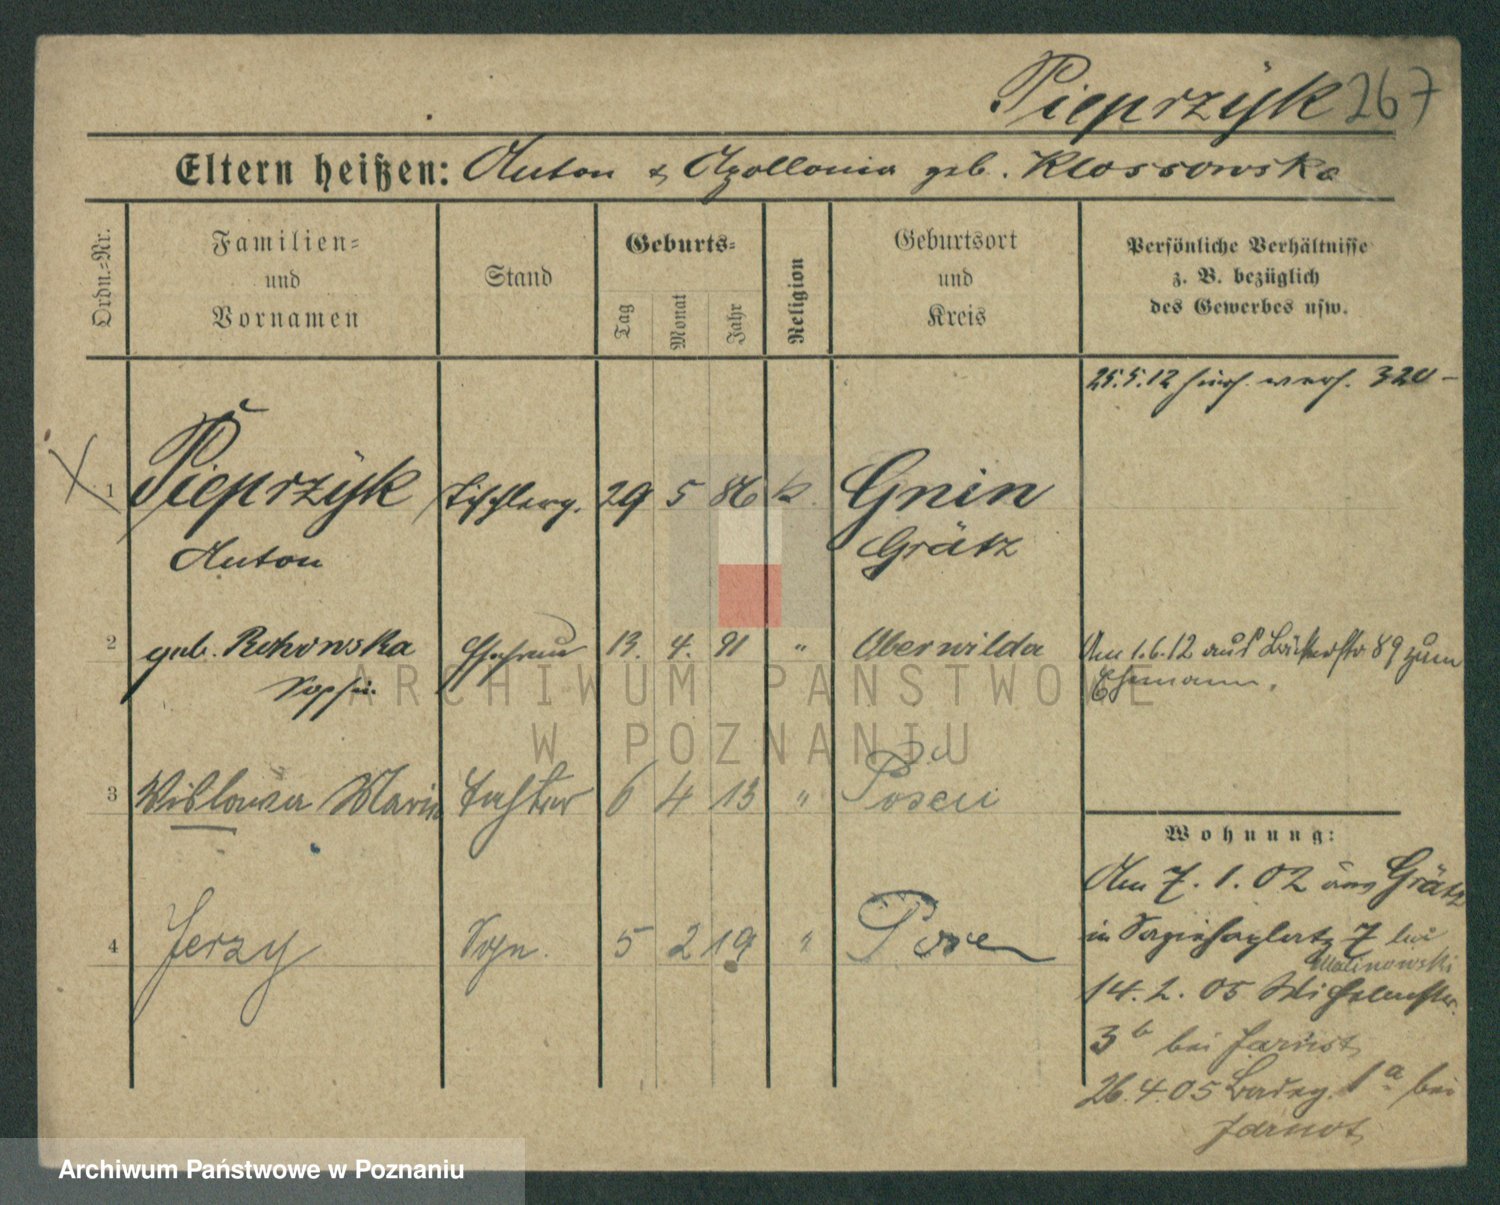 Pieprzÿk 267
Eltern heißen: Anton & Apollonia geb. Klossowska
Ordn.-Nr.
Familien-
und
Vornamen
Stand
Geburts-
Tag
Monat
Jahr
Religion
Geburtsort
und
Kreis
Persönliche Verhältnisse
z. B. bezüglich
des Gewerbes usw.
25.5.12 320 -
1 Pieprzÿk Tischlerg. 29 5 86 k. Gnin
Anton Grätz
2 geb. Ehefrau 13. 4. 91 " Oberwilda Am 1.6.12 aus Bäckerstr 89 zum
Sophie Ehemann.
3 Maria Tochter 6 4 13 " Posen
4 Jerzy Sohn. 5 2 19 " Posen
Wohnung:
Am 7. 1. 02 aus Grätz
in Sapiehaplatz 7 bei
Malinowski
14. 2. 05 Wilhelmstr.
3 b bei Jarnot
26.4.05 1 a bei
Jarnot
ARCHIWUM PAŃSTWOWE
W POZNANIU
Archiwum Państwowe w Poznaniu